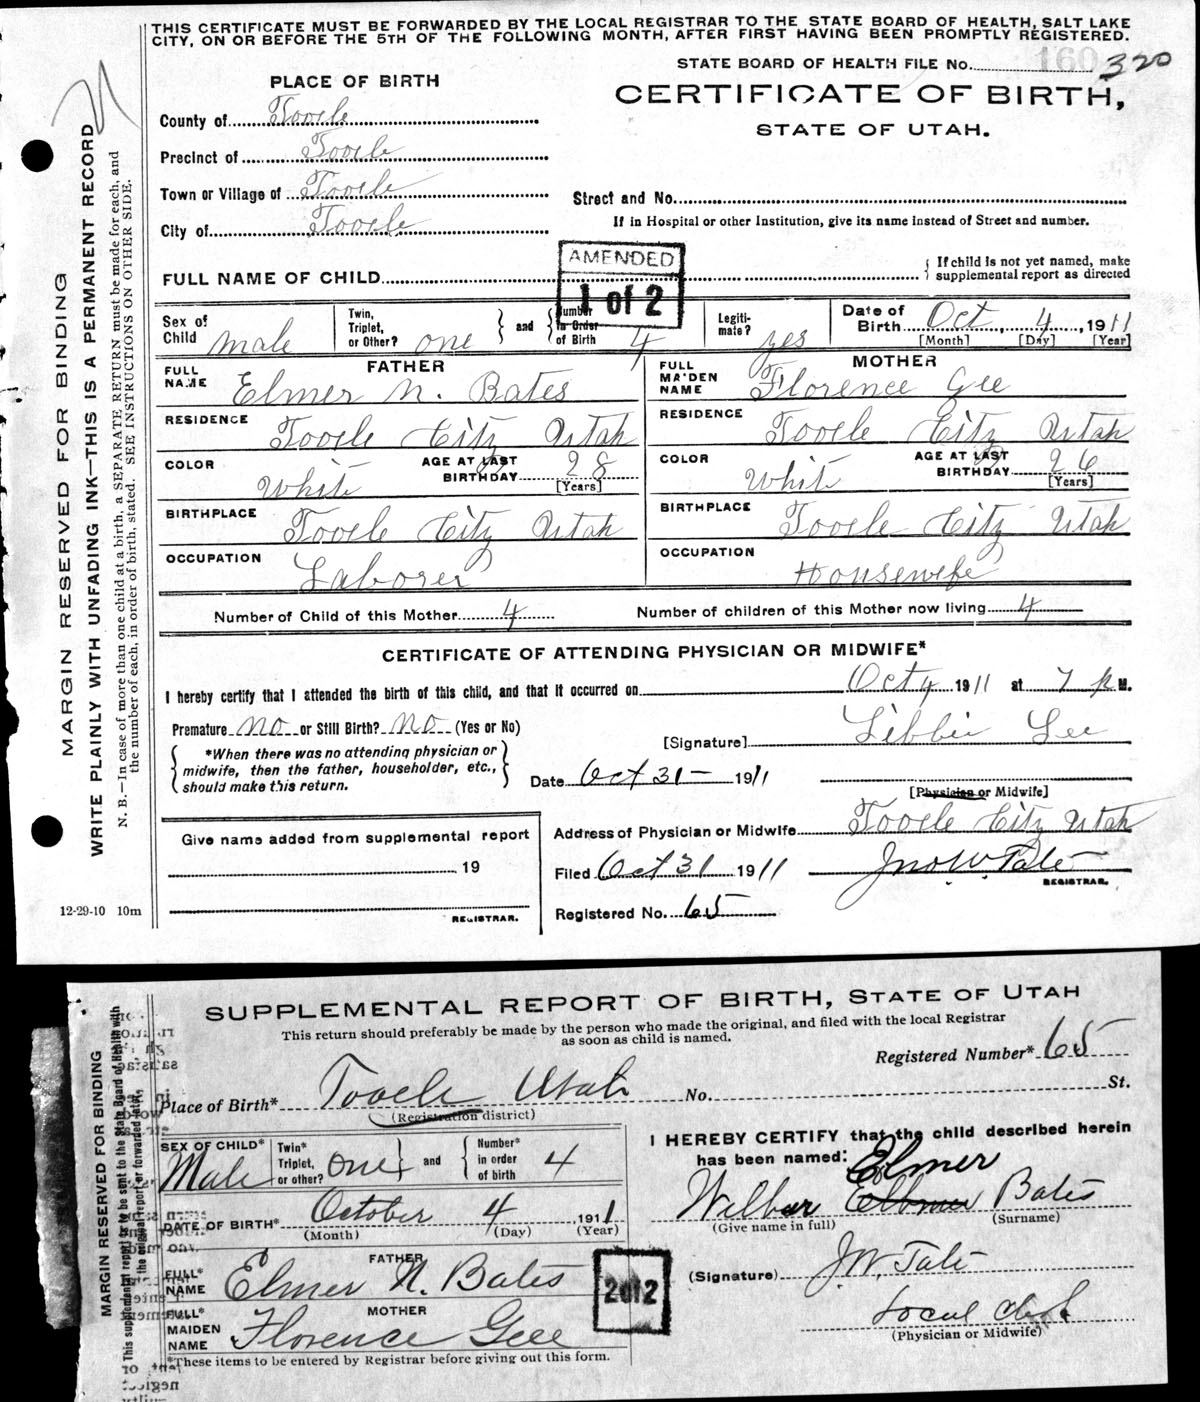 THIS CERTIFICATE MUST BE FORWARDED BY THE LOCAL REGISTRAR TO THE STATE BOARD OF HEALTH, SALT LAKE
CITY, ON OR BEFORE THE 5TH OF THE FOLLOWING MONTH, AFTER FIRST HAVING BEEN PROMPTLY REGISTERED.
STATE BOARD OF HEALTH FILE No. 160 320
PLACE OF BIRTH
CERTIFICATE OF BIRTH,
STATE OF UTAH.
County of Tooele
Precinct of Tooele
Town or Village of Tooele
City of Tooele
Street and No.
If in Hospital or other Institution, give its name instead of Street and number.
AMENDED
1 of 2
FULL NAME OF CHILD
{ If child is not yet named, make
supplemental report as directed
Sex of Child Male
Twin, Triplet, or Other? one } and { Number in Order of Birth 4
Legitimate? yes
Date of Birth Oct, 4, 1911
[Month] [Day] [Year]
FATHER
FULL NAME Elmer N. Bates
RESIDENCE Tooele City Utah
COLOR White AGE AT LAST BIRTHDAY 28
[Years]
BIRTHPLACE Tooele City Utah
OCCUPATION Laborer
MOTHER
FULL MAIDEN NAME Florence Gee
RESIDENCE Tooele City Utah
COLOR White AGE AT LAST BIRTHDAY 26
[Years]
BIRTHPLACE Tooele City Utah
OCCUPATION Housewife
Number of Child of this Mother 4 Number of children of this Mother now living 4
CERTIFICATE OF ATTENDING PHYSICIAN OR MIDWIFE*
I hereby certify that I attended the birth of this child, and that it occurred on Oct 4 1911 at 7 p M.
Premature no or Still Birth? no (Yes or No)
{ *When there was no attending physician or
midwife, then the father, householder, etc.,
should make this return. }
[Signature] Libbie Lee
Date Oct 31 - 1911
[Physician or Midwife]
Address of Physician or Midwife Tooele City Utah
Filed Oct 31 1911 Jno W Tate
REGISTRAR.
Registered No. 65
Give name added from supplemental report
19
REGISTRAR.
12-29-10 10m
MARGIN RESERVED FOR BINDING
WRITE PLAINLY WITH UNFADING INK—THIS IS A PERMANENT RECORD
N. B.—In case of more than one child at a birth, a SEPARATE RETURN must be made for each, and
the number of each, in order of birth, stated. SEE INSTRUCTIONS ON OTHER SIDE.
SUPPLEMENTAL REPORT OF BIRTH, STATE OF UTAH
This return should preferably be made by the person who made the original, and filed with the local Registrar
as soon as child is named.
Registered Number* 65
Place of Birth* Tooele Utah No. St.
(Registration district)
SEX OF CHILD* Male
Twin* Triplet, or other? one } and { Number* in order of birth 4
DATE OF BIRTH* October 4, 1911
(Month) (Day) (Year)
FATHER
FULL* NAME Elmer N. Bates
MOTHER
FULL* MAIDEN NAME Florence Gee
*These items to be entered by Registrar before giving out this form.
I HEREBY CERTIFY that the child described herein
has been named:
Elmer
Wilbur Bates
(Give name in full) (Surname)
(Signature) J.W. Tate
Local
(Physician or Midwife)
2 of 2
MARGIN RESERVED FOR BINDING
This supplemental report to be sent to the State Board of Health with
the original report or forwarded later.